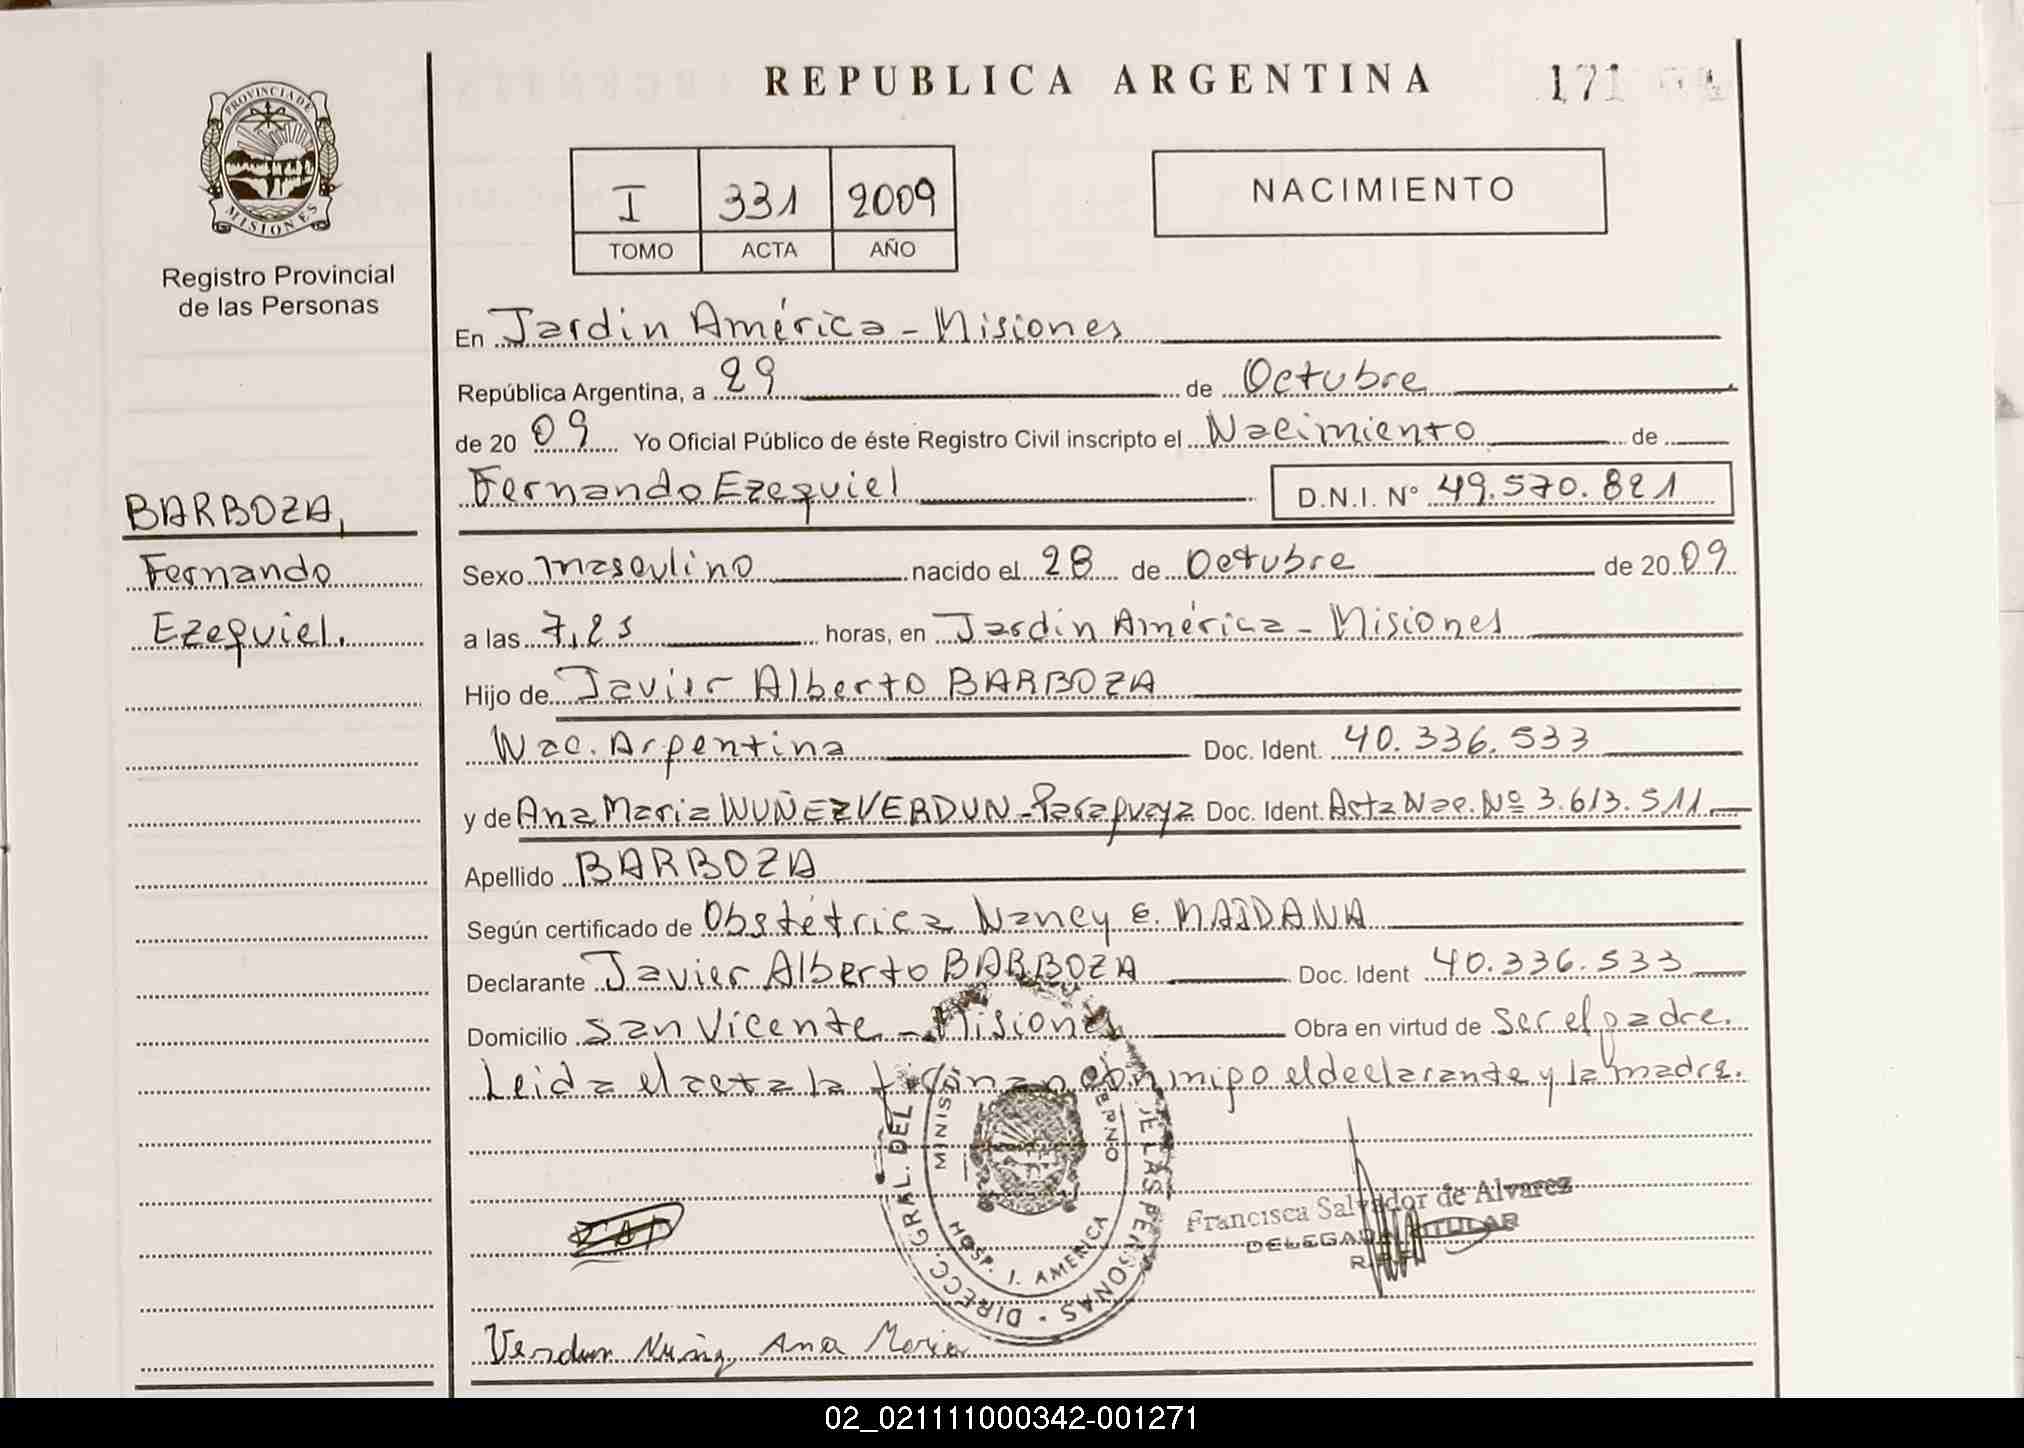 REPUBLICA ARGENTINA
171
PROVINCIA DE
MISIONES
Registro Provincial
de las Personas
I 331 2009
TOMO ACTA AÑO
NACIMIENTO
En Jardin América - Misiones
República Argentina, a 29 de Octubre
de 20 09 Yo Oficial Público de éste Registro Civil inscripto el Nacimiento de
Fernando Ezequiel D.N.I. N° 49.570.821
BARBOZA,
Fernando
Ezequiel.
Sexo masculino nacido el 28 de Octubre de 20 09
a las 7,25 horas, en Jardín América - Misiones
Hijo de Javier Alberto BARBOZA
Nac. Argentina Doc. Ident. 40.336.533
y de Ana Maria NUÑEZ VERDUN - Paraguaya Doc. Ident. Acta Nac. Nº 3.613.511
Apellido BARBOZA
Según certificado de Obstétrica Nancy E. MAIDANA
Declarante Javier Alberto BARBOZA Doc. Ident 40.336.533
Domicilio San Vicente - Misiones Obra en virtud de ser el padre.
Leida el acta la firman conmigo el declarante y la madre.
DIRECC. GRAL. DEL DE LAS PERSONAS
HOSP. J. AMERICA
Francisca Salvador de Alvarez
DELEGADA TITULAR
Verdun Nuñez Ana Maria
02_021111000342-001271